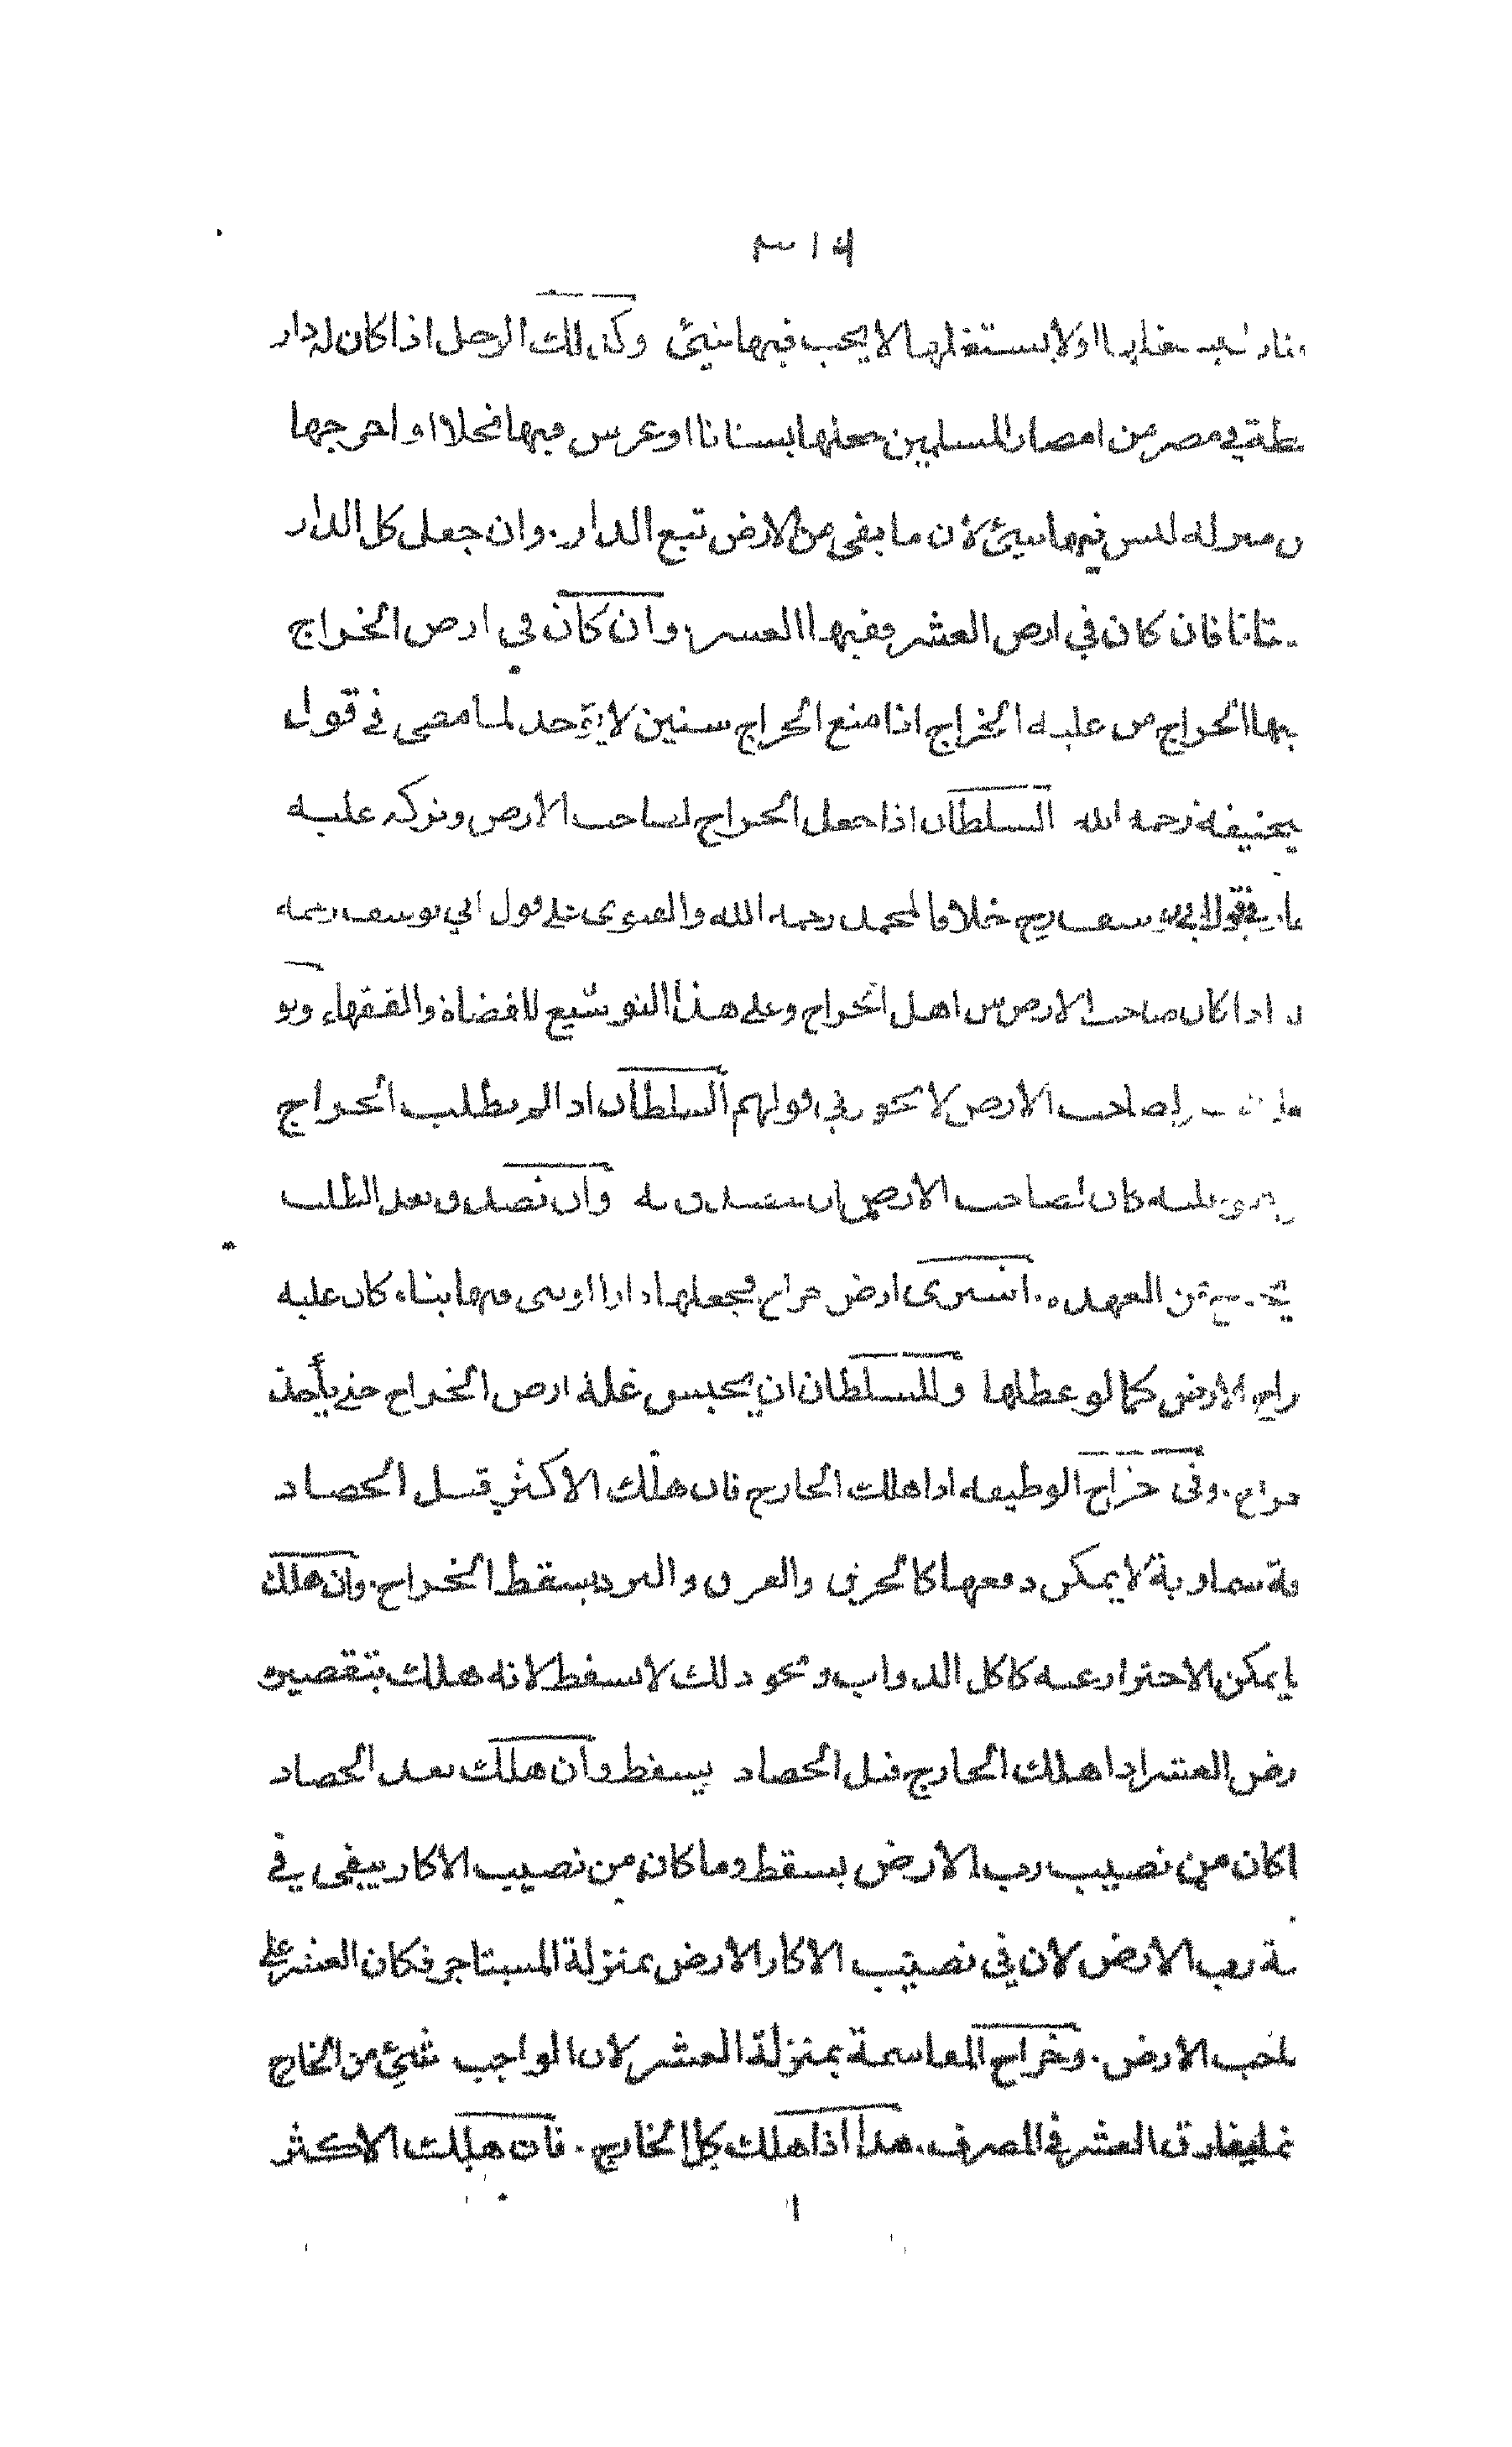 يستغلها او لا يستغلها لا يجب فيها شيئ وكذلك الرجل اذا كان له دار
خطة في مصر من امصار المسلمين جعلها بستانا او غرس فيها نخلا او اخرجها
ن منزله ليس فيها شيئ لأن ما بقى من الارض تبع الدار. وان جعل كل الدار
ستانا فان كان في ارض العشر ففيها العشر. وان كان في ارض الخراج
يها الخراج من عليه الخراج اذا منع الخراج سنين لا يؤخذ لما مضى في قول
بيحنيفة رحمه الله السلطان اذا جعل الخراج لصاحب الارض وتركه عليه
قول ابي يوسف رح خلافا لمحمد رحمه الله والفتوى على قول ابي يوسف رحمه
اذا كان صاحب الارض من اهل الخراج وعلى هذا التوسيع للقضاة والفقهاء ولو
لصاحب الارض لا يجوز في قولهم السلطان اذا لم يطلب الخراج
عليه كان لصاحب الارض ان يتصدق به وان تصدق بعد الطلب
يخرج عن العهدة. اشترى ارض خراج فجعلها دارا او بنى فيها بناء كان عليه
راج الارض كما لو عطلها وللسلطان ان يحبس غلة ارض الخراج حتى يأخذ
خراج. وفى خراج الوظيفه اذا هلك الخارج فان هلك الاكثر قبل الحصاد
فة سماوية لا يمكن دفعها كالحرق والغرق والبرد يسقط الخراج. وان هلك
يمكن الاحتراز عنه كاكل الدواب ونحو ذلك لا يسقط لانه هلك بتقصيره
رض العشر اذا هلك الخارج قبل الحصاد يسقط وان هلك بعد الحصاد
اكان من نصيب رب الارض يسقط وما كان من نصيب الاكار يبقى في
ة رب الارض لان في نصيب الاكار الارض بمنزلة المستاجر فكان العشر على
احب الارض. وخراج المقاسمة بمنزلة العشر لان الواجب شيئ من الخارج
يفارق العشر في المصرف. هذا اذا هلك كل الخارج. فان هلك الاكثر